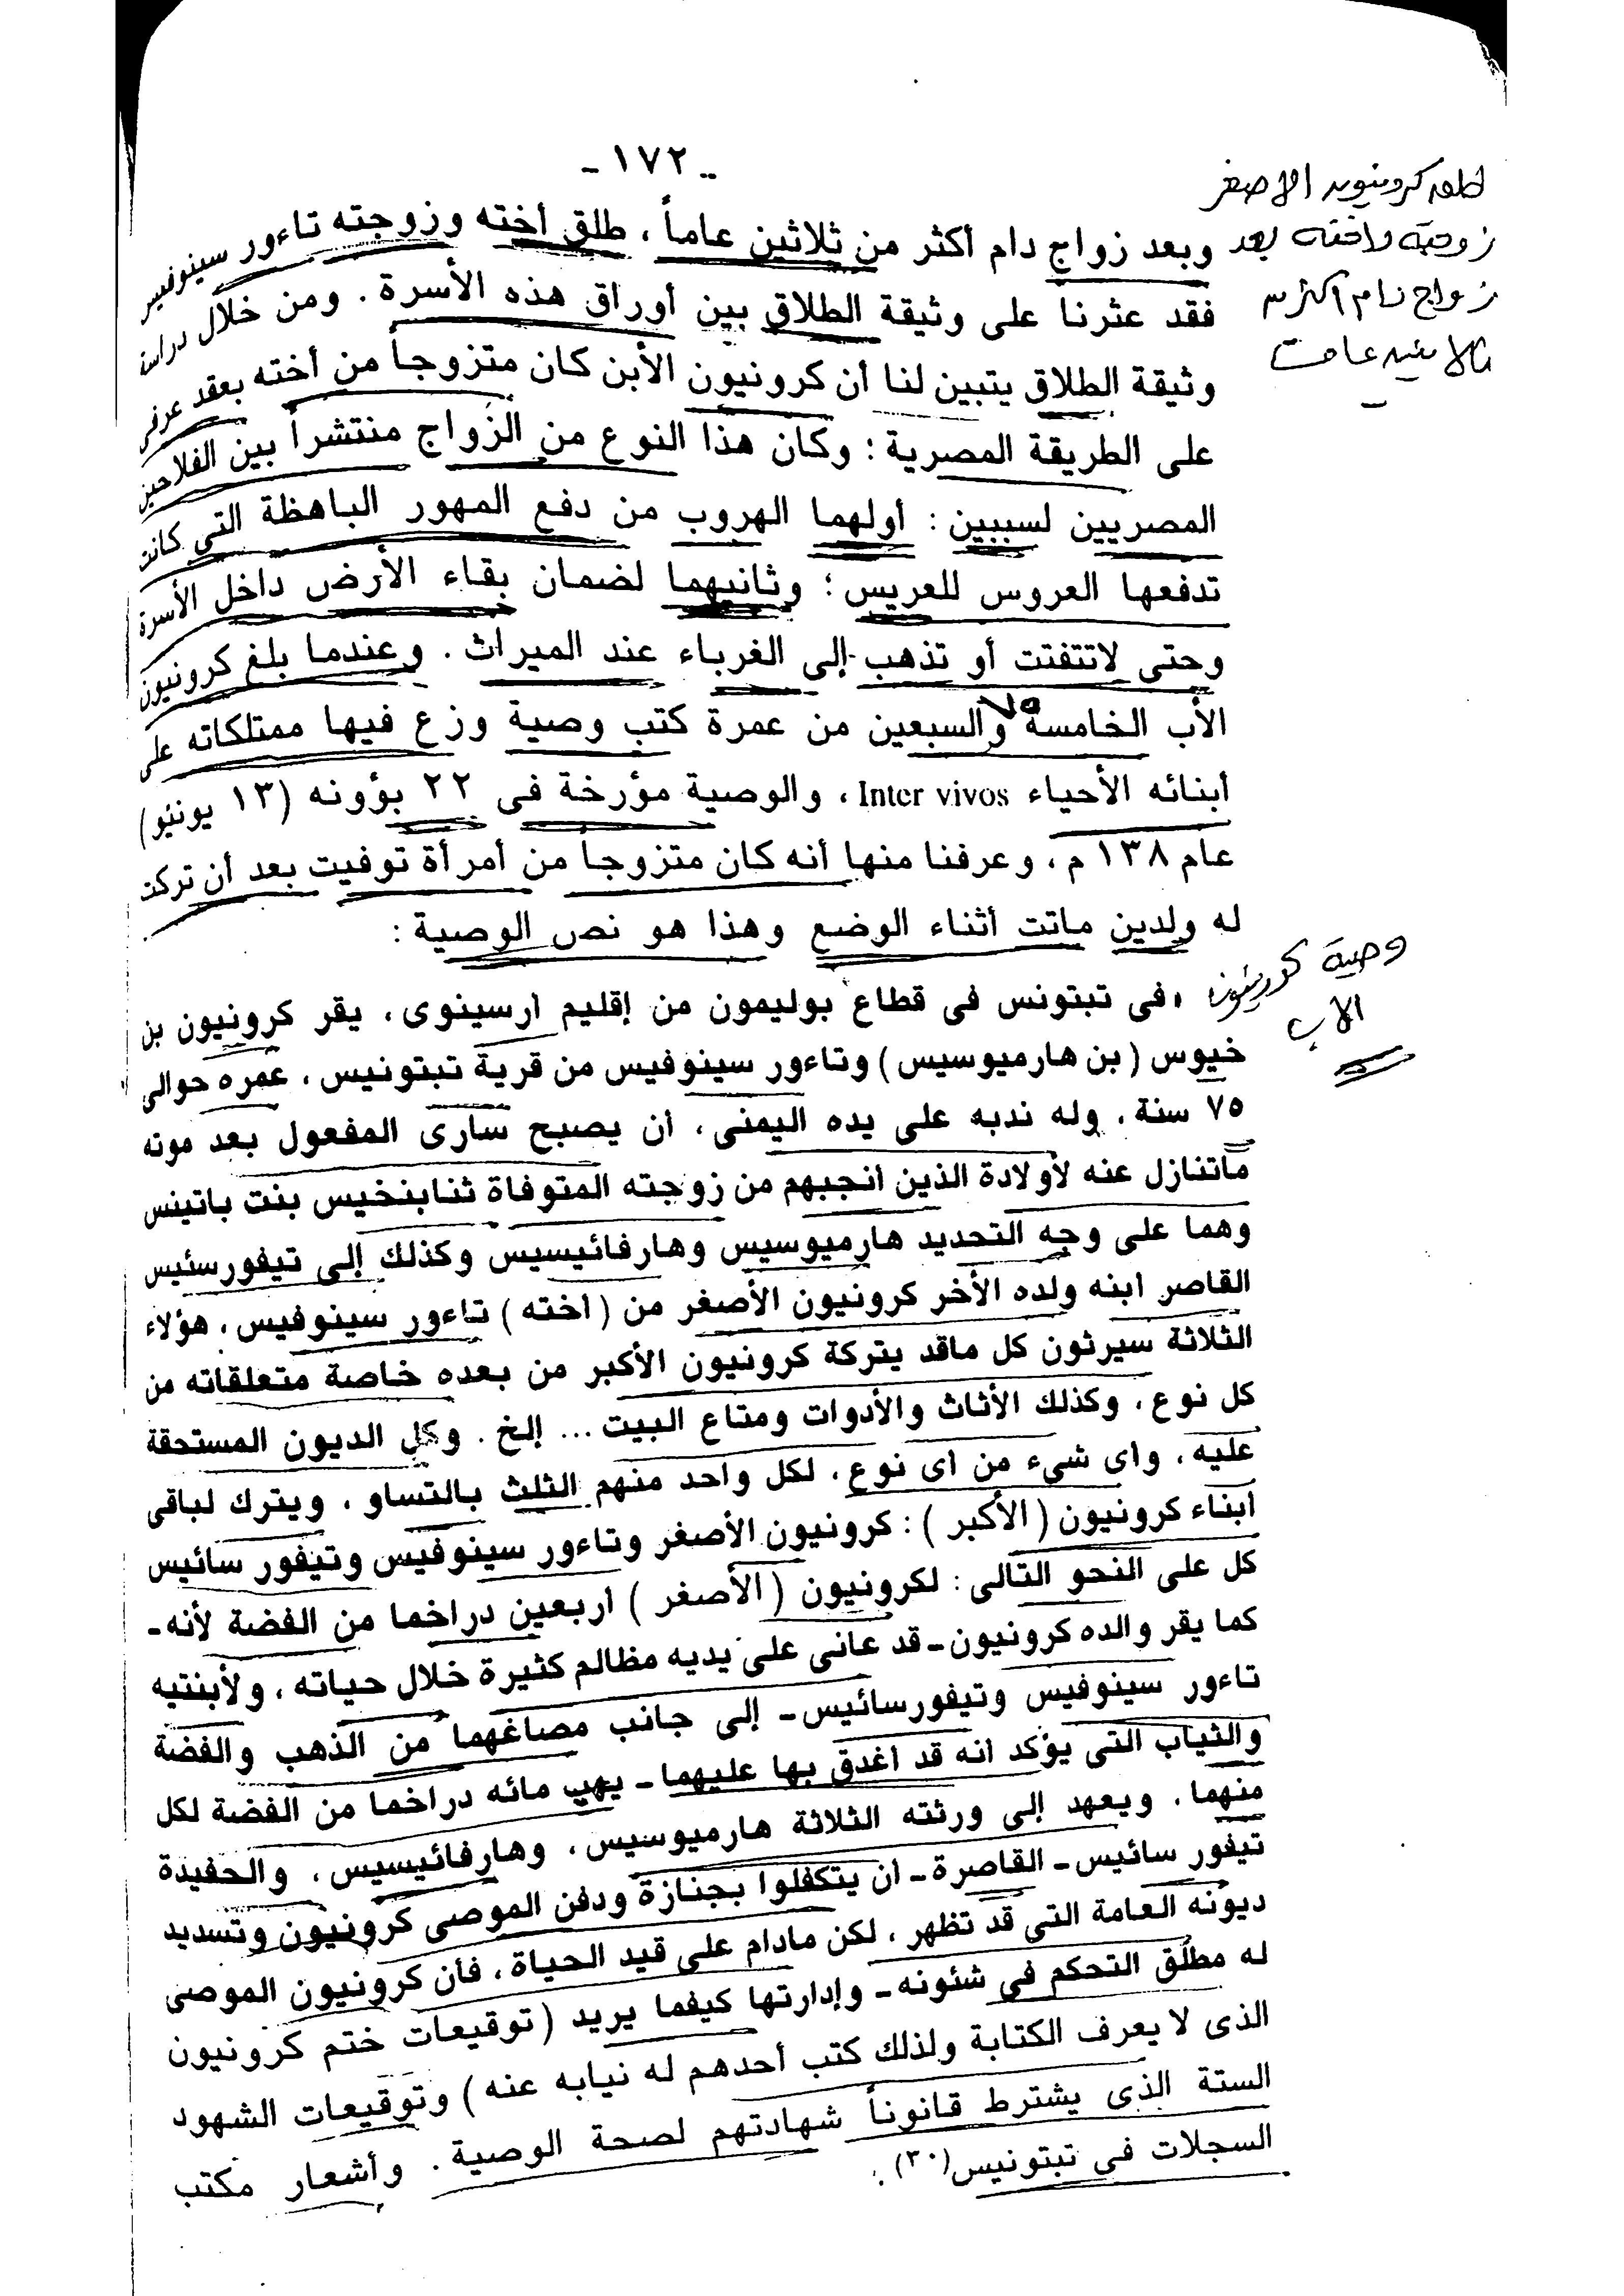 -١٧٢-
طلق كرونيون الاصغر
زوجته واخته بعد
زواج دام اكثر من
ثلاثين عاما
وبعد زواج دام أكثر من ثلاثين عاماً ، طلق أخته وزوجته تاءور سينوفيس
فقد عثرنا على وثيقة الطلاق بين أوراق هذه الأسرة . ومن خلال دراسة
وثيقة الطلاق يتبين لنا أن كرونيون الأبن كان متزوجاً من أخته بعقد عرفى
على الطريقة المصرية ؛ وكان هذا النوع من الزواج منتشراً بين الفلاحين
المصريين لسببين : أولهما الهروب من دفع المهور الباهظة التى كانت
تدفعها العروس للعريس ؛ وثانيهما لضمان بقاء الأرض داخل الأسرة
وحتى لاتتفتت أو تذهب إلى الغرباء عند الميراث . وعندما بلغ كرونيون
الأب الخامسة والسبعين من عمرة كتب وصية وزع فيها ممتلكاته على
٧٥
أبنائه الأحياء Inter vivos ، والوصية مؤرخة فى ٢٢ بؤونه (١٣ يونيو)
عام ١٣٨ م ، وعرفنا منها أنه كان متزوجاً من أمرأة توفيت بعد أن تركت
له ولدين ماتت أثناء الوضع وهذا هو نص الوصية :
وصية كورنيون
الاب
«فى تبتونس فى قطاع بوليمون من إقليم أرسينوى ، يقر كرونيون بن
خيوس (بن هارميوسيس) وتاءور سينوفيس من قرية تبتونيس ، عمره حوالى
٧٥ سنة ، وله ندبه على يده اليمنى ، أن يصبح سارى المفعول بعد موته
ماتنازل عنه لأولادة الذين أنجبهم من زوجته المتوفاة ثنابنخيس بنت باتينس
وهما على وجه التحديد هارميوسيس وهارفائيسيس وكذلك إلى تيفورسئيس
القاصر ابنه ولده الأخر كرونيون الأصغر من (اخته) تاءور سينوفيس ، هؤلاء
الثلاثة سيرثون كل ماقد يتركة كرونيون الأكبر من بعده خاصة متعلقاته من
كل نوع ، وكذلك الأثاث والأدوات ومتاع البيت ... إلخ . وكل الديون المستحقة
عليه ، واى شىء من اى نوع ، لكل واحد منهم الثلث بالتساو ، ويترك لباقى
أبناء كرونيون (الأكبر) : كرونيون الأصغر وتاءور سينوفيس وتيفور سائيس
كل على النحو التالى : لكرونيون (الأصغر) اربعين دراخما من الفضة لأنه -
كما يقر والده كرونيون - قد عانى على يديه مظالم كثيرة خلال حياته ، ولأبنتيه
تاءور سينوفيس وتيفورسائيس - إلى جانب مصاغهما من الذهب والفضة
والثياب التى يؤكد انه قد اغدق بها عليهما - يهب مائه دراخما من الفضة لكل
منهما . ويعهد إلى ورثته الثلاثة هارميوسيس ، وهارفائيسيس ، والحفيدة
تيفور سائيس - القاصرة - ان يتكفلوا بجنازة ودفن الموصى كرونيون وتسديد
ديونه العامة التى قد تظهر ، لكن مادام على قيد الحياة ، فأن كرونيون الموصى
له مطلق التحكم فى شئونه - وإدارتها كيفما يريد (توقيعات ختم كرونيون
الذى لا يعرف الكتابة ولذلك كتب أحدهم له نيابه عنه) وتوقيعات الشهود
الستة الذى يشترط قانوناً شهادتهم لصحة الوصية . وأشعار مكتب
السجلات فى تبتونيس(٣٠) :